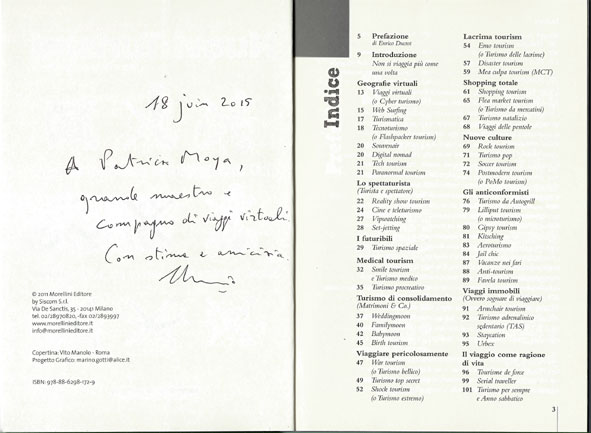 18 juin 2015
A Patrick Moya,
grande maestro e
compagno di viaggi virtuali.
Con stima e amicizia
© 2011 Morellini Editore
by Siscom S.r.l.
Via De Sanctis, 35 - 20141 Milano
www.morellinieditore.it
info@morellinieditore.it
Copertina: Vito Manolo - Roma
Progetto Grafico: marino.gotti@alice.it
ISBN: 978-88-6298-172-9
Indice
5 Prefazione
9 Introduzione
Non si viaggia più come
una volta
Geografie virtuali
13 Viaggi virtuali
(o Cyber turismo)
15 Web Surfing
17 Turismatica
18 Tecnoturismo
(o Flashpacker tourism)
20 Souvenair
20 Digital nomad
21 Tech tourism
21 Paranormal tourism
Lo spettaturista
(Turista e spettatore)
22 Reality show tourism
24 Cine e teleturismo
27 Vipwatching
28 Set-jetting
I futuribili
29 Turismo spaziale
Medical tourism
32 Smile tourism
e Turismo medico
35 Turismo procreativo
Turismo di consolidamento
(Matrimoni & Co.)
37 Weddingmoon
40 Familymoon
42 Babymoon
45 Birth tourism
Viaggiare pericolosamente
47 War tourism
(o Turismo bellico)
49 Turismo top secret
52 Shock tourism
(o Turismo estremo)
Lacrima tourism
54 Emo tourism
(o Turismo delle lacrime)
57 Disaster tourism
59 Mea culpa tourism (MCT)
Shopping totale
61 Shopping tourism
65 Flea market tourism
(o Turismo da mercatini)
67 Turismo natalizio
68 Viaggi delle pentole
Nuove culture
69 Rock tourism
71 Turismo pop
72 Soccer tourism
74 Postmodern tourism
(o PoMo tourism)
Gli anticonformisti
76 Turismo da Autogrill
79 Lilliput tourism
(o microturismo)
80 Gipsy tourism
81 Kitsching
83 Aeroturismo
84 Jail chic
87 Vacanze nei fari
88 Anti-tourism
89 Favela tourism
Viaggi immobili
(Ovvero sognare di viaggiare)
91 Armchair tourism
92 Turismo adrenalinico
sedentario (TAS)
93 Staycation
95 Urbex
Il viaggio come ragione
di vita
96 Tourisme de fonx
99 Serial traveller
101 Turismo per sempre
e Anno sabbatico
3